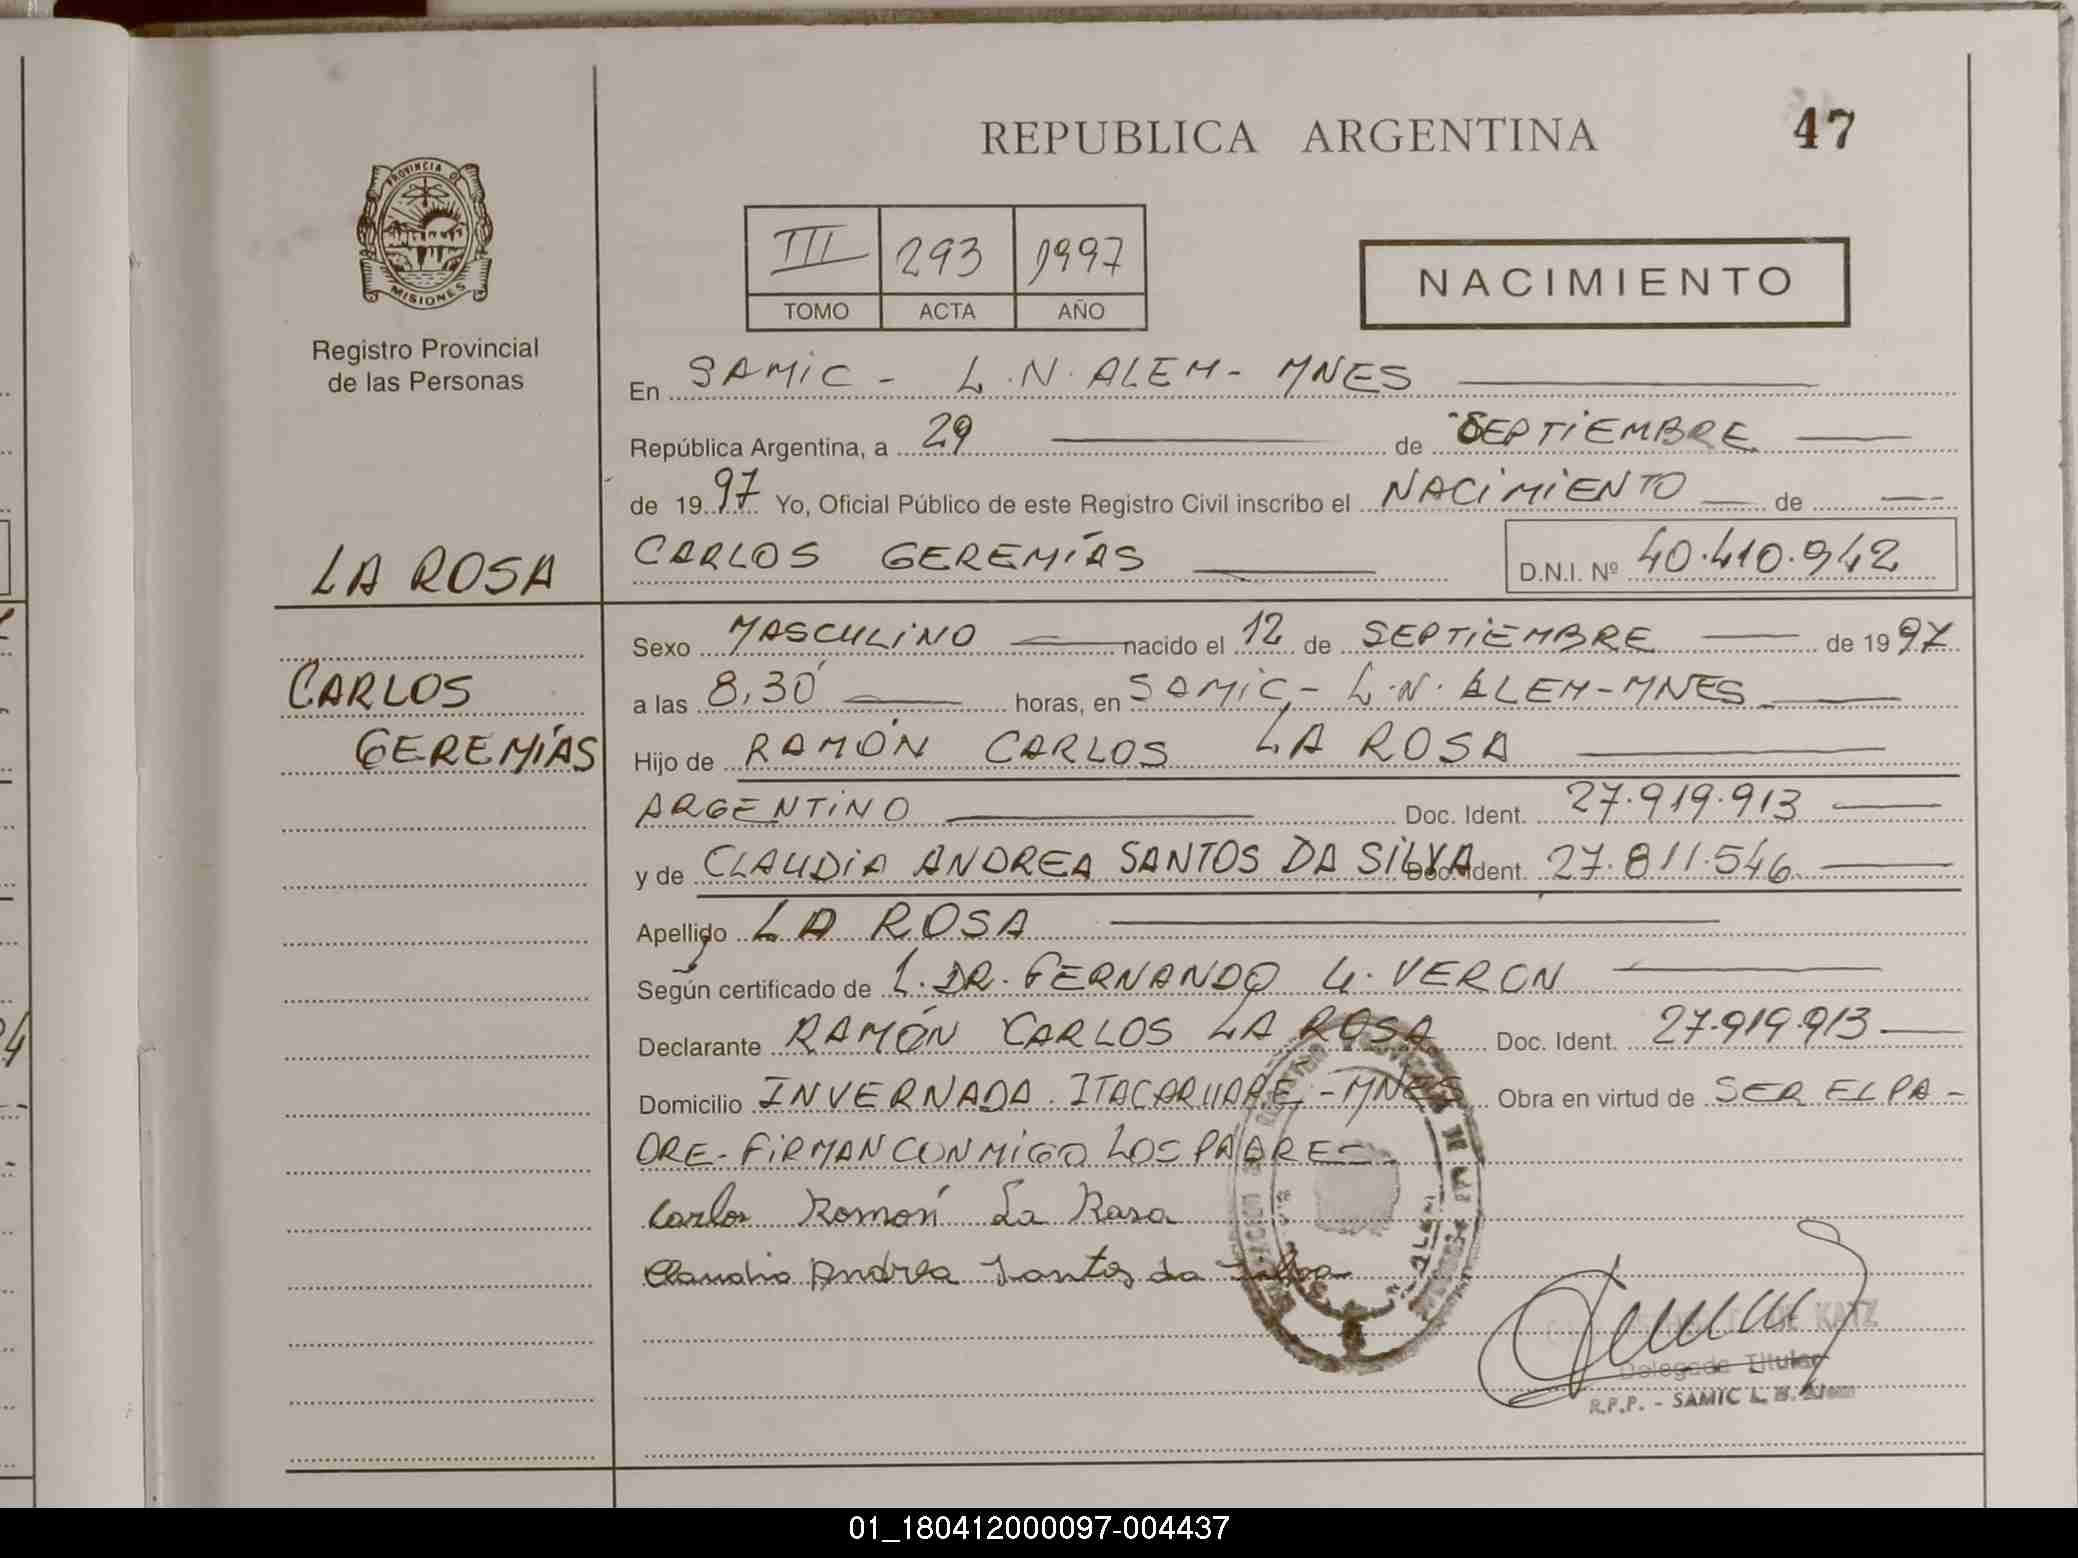 REPUBLICA ARGENTINA
47
PROVINCIA DE
MISIONES
Registro Provincial
de las Personas
III 293 1997
TOMO ACTA AÑO
NACIMIENTO
En SAMIC - L.N. ALEM - MNES
República Argentina, a 29 de SEPTIEMBRE
de 1997 Yo, Oficial Público de este Registro Civil inscribo el NACIMIENTO de
LA ROSA
CARLOS GEREMÍAS
D.N.I. Nº 40.410.942
Sexo MASCULINO nacido el 12 de SEPTIEMBRE de 1997
CARLOS
a las 8,30 horas, en SAMIC - L.N. ALEM - MNES
GEREMÍAS
Hijo de RAMÓN CARLOS LA ROSA
ARGENTINO Doc. Ident. 27.919.913
y de CLAUDIA ANDREA SANTOS DA SILVA Doc. Ident. 27.811.546
Apellido LA ROSA
Según certificado de DR. FERNANDO VERON
Declarante RAMÓN CARLOS LA ROSA Doc. Ident. 27.919.913
Domicilio INVERNADA ITACARUARE - MNES Obra en virtud de SER EL PA-
DRE - FIRMAN CONMIGO LOS PADRES
Carlos Ramón La Rosa
Claudia Andrea Santos da Silva
DE KATZ
Delegada Titular
R.P.P. - SAMIC L. N. Alem
01_180412000097-004437